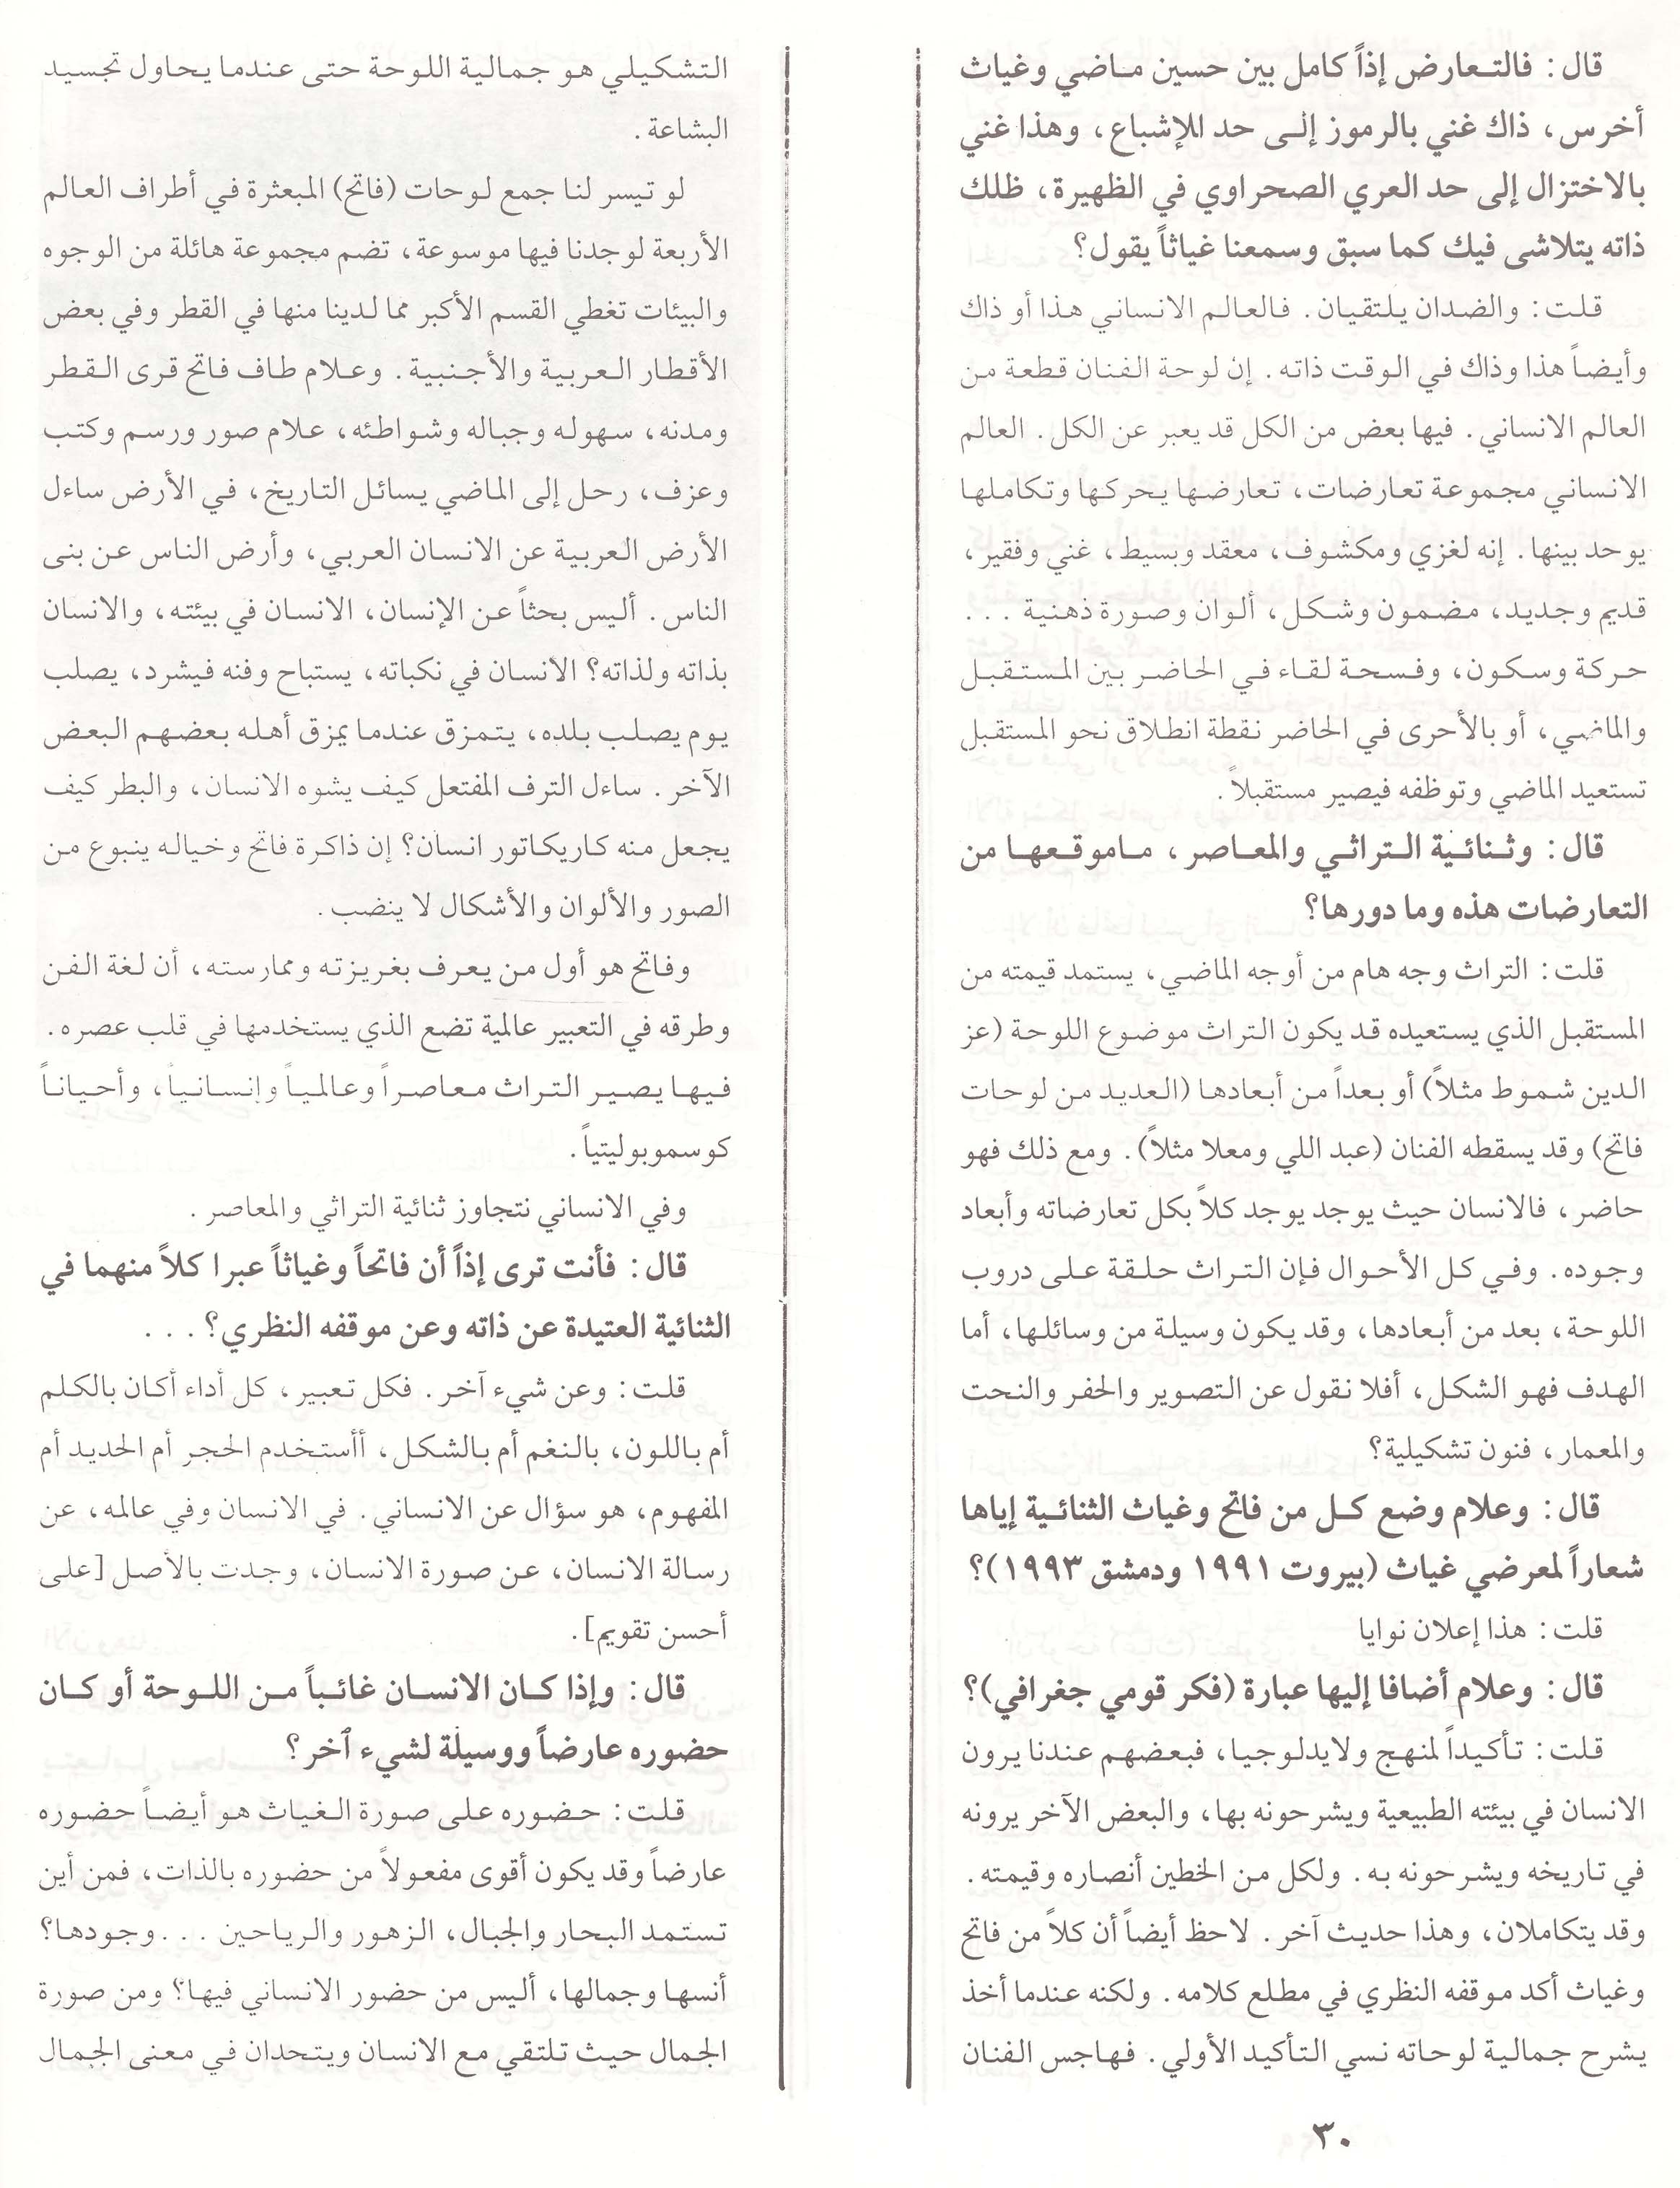 قال : فالتعارض إذاً كامل بين حسين ماضي وغياث
أخرس ، ذاك غني بالرموز إلى حد الإشباع ، وهذا غني
بالاختزال إلى حد العري الصحراوي في الظهيرة ، ظلك
ذاته يتلاشى فيك كما سبق وسمعنا غياثاً يقول؟
قلت : والضدان يلتقيان . فالعالم الانساني هذا أو ذاك
وأيضاً هذا وذاك في الوقت ذاته . إن لوحة الفنان قطعة من
العالم الانساني . فيها بعض من الكل قد يعبر عن الكل . العالم
الانساني مجموعة تعارضات ، تعارضها يحركها وتكاملها
يوحد بينها . إنه لغزي ومكشوف ، معقد وبسيط ، غني وفقير ،
قديم وجديد ، مضمون وشكل ، ألوان وصورة ذهنية . . .
حركة وسكون ، وفسحة لقاء في الحاضر بين المستقبل
والماضي ، أو بالأحرى في الحاضر نقطة انطلاق نحو المستقبل
تستعيد الماضي وتوظفه فيصير مستقبلاً .
قال : وثنائية التراثي والمعاصر ، ماموقعها من
التعارضات هذه وما دورها؟
قلت : التراث وجه هام من أوجه الماضي ، يستمد قيمته من
المستقبل الذي يستعيده قد يكون التراث موضوع اللوحة (عز
الدين شموط مثلاً) أو بعداً من أبعادها (العديد من لوحات
فاتح) وقد يسقطه الفنان (عبد اللي ومعلا مثلاً) . ومع ذلك فهو
حاضر ، فالانسان حيث يوجد يوجد كلاً بكل تعارضاته وأبعاد
وجوده . وفي كل الأحوال فإن التراث حلقة على دروب
اللوحة ، بعد من أبعادها ، وقد يكون وسيلة من وسائلها ، أما
الهدف فهو الشكل ، أفلا نقول عن التصوير والحفر والنحت
والمعمار ، فنون تشكيلية؟
قال : وعلام وضع كل من فاتح وغياث الثنائية إياها
شعاراً لمعرضي غياث (بيروت ١٩٩١ ودمشق ١٩٩٣)؟
قلت : هذا إعلان نوايا
قال : وعلام أضافا إليها عبارة (فكر قومي جغرافي)؟
قلت : تأكيداً لمنهج ولايدلوجيا ، فبعضهم عندنا يرون
الانسان في بيئته الطبيعية ويشرحونه بها ، والبعض الآخر يرونه
في تاريخه ويشرحونه به . ولكل من الخطين أنصاره وقيمته .
وقد يتكاملان ، وهذا حديث آخر . لاحظ أيضاً أن كلاً من فاتح
وغياث أكد موقفه النظري في مطلع كلامه . ولكنه عندما أخذ
يشرح جمالية لوحاته نسي التأكيد الأولي . فهاجس الفنان
التشكيلي هو جمالية اللوحة حتى عندما يحاول تجسيد
البشاعة .
لو تيسر لنا جمع لوحات (فاتح) المبعثرة في أطراف العالم
الأربعة لوجدنا فيها موسوعة ، تضم مجموعة هائلة من الوجوه
والبيئات تغطي القسم الأكبر مما لدينا منها في القطر وفي بعض
الأقطار العربية والأجنبية . وعلام طاف فاتح قرى القطر
ومدنه ، سهوله وجباله وشواطئه ، علام صور ورسم وكتب
وعزف ، رحل إلى الماضي يسائل التاريخ ، في الأرض ساءل
الأرض العربية عن الانسان العربي ، وأرض الناس عن بنى
الناس . أليس بحثاً عن الإنسان ، الانسان في بيئته ، والانسان
بذاته ولذاته؟ الانسان في نكباته ، يستباح وفنه فيشرد ، يصلب
يوم يصلب بلده ، يتمزق عندما يمزق أهله بعضهم البعض
الآخر . ساءل الترف المفتعل كيف يشوه الانسان ، والبطر كيف
يجعل منه كاريكاتور انسان؟ إن ذاكرة فاتح وخياله ينبوع من
الصور والألوان والأشكال لا ينضب .
وفاتح هو أول من يعرف بغريزته وممارسته ، أن لغة الفن
وطرقه في التعبير عالمية تضع الذي يستخدمها في قلب عصره .
فيها يصير التراث معاصراً وعالمياً وإنسانياً ، وأحياناً
كوسموبوليتياً .
وفي الانساني نتجاوز ثنائية التراثي والمعاصر .
قال : فأنت ترى إذاً أن فاتحاً وغياثاً عبرا كلاً منهما في
الثنائية العتيدة عن ذاته وعن موقفه النظري؟ . . .
قلت : وعن شيء آخر . فكل تعبير ، كل أداء أكان بالكلم
أم باللون ، بالنغم أم بالشكل ، أأستخدم الحجر أم الحديد أم
المفهوم ، هو سؤال عن الانساني . في الانسان وفي عالمه ، عن
رسالة الانسان ، عن صورة الانسان ، وجدت بالأصل [على
أحسن تقويم] .
قال : وإذا كان الانسان غائباً من اللوحة أو كان
حضوره عارضاً ووسيلة لشيء آخر ؟
قلت : حضوره على صورة الغياث هو أيضاً حضوره
عارضاً وقد يكون أقوى مفعولاً من حضوره بالذات ، فمن أين
تستمد البحار والجبال ، الزهور والرياحين . . . وجودها؟
أنسها وجمالها ، أليس من حضور الانساني فيها؟ ومن صورة
الجمال حيث تلتقي مع الانسان ويتحدان في معنى الجمال
٣٠